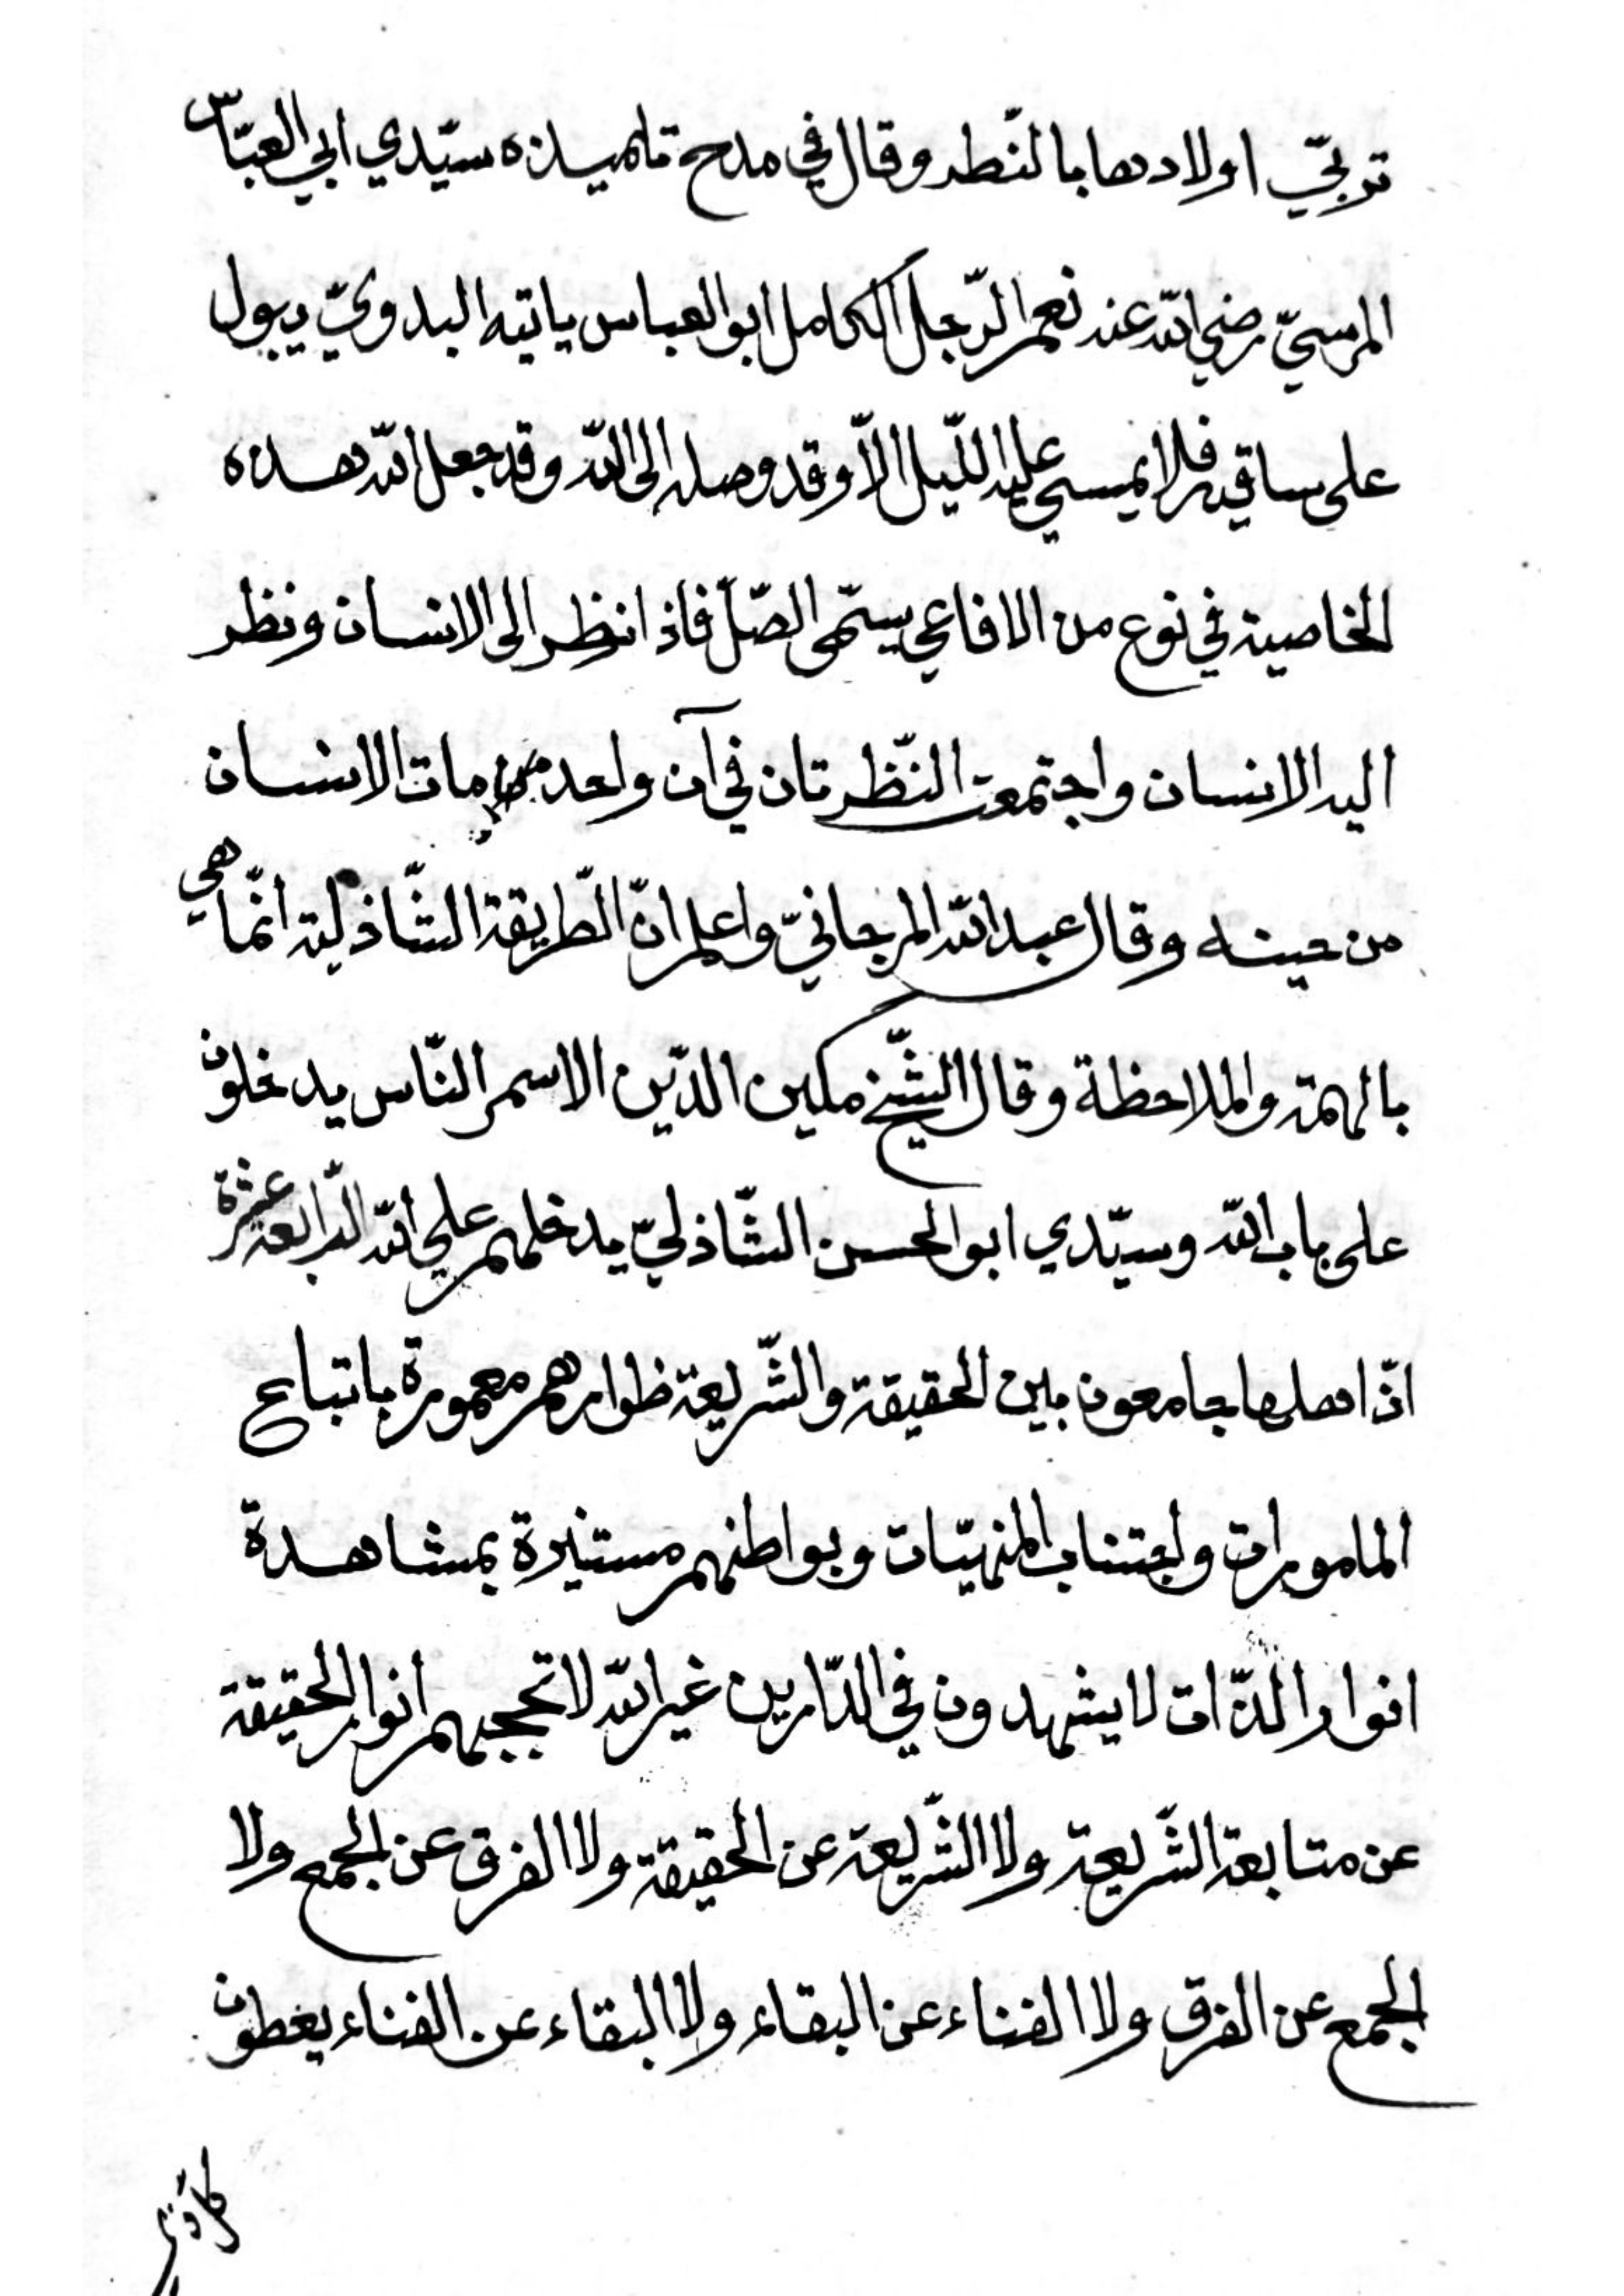 تربّي اولادها بالنّظر وقال في مدح تلميذه سيّدي ابي العبّاس
المرسيّ رضي الله عنه نعم الرّجل الكامل ابو العباس ياتيه البدويّ يبول
على ساقيه فلا يمسي عليه اللّيل الاّ وقد وصله الى الله وقد جعل الله هذه
الخاصية في نوع من الافاعي يسمّى الصّلّ فاذا نظر الى الانسان ونظر
اليه الانسان واجتمعت النّظرتان في آن واحد مات الانسان
من حينه وقال عبد الله المرجانيّ واعلم انّ الطّريقة الشّاذلية انّما هي
بالهمة والملاحظة وقال الشّيخ مكين الدّين الاسمر النّاس يدخلون
على باب الله وسيّدي ابو الحسن الشّاذليّ يدخلهم على الله الرّابعة عشرة
انّ اهلها جامعون بين الحقيقة والشّريعة ظواهرهم معمورة باتباع
المامورات واجتناب المنهيّات وبواطنهم مستنيرة بمشاهدة
انوار الذّات لا يشهدون في الدّارين غير الله لا تحجبهم انوار الحقيقة
عن متابعة الشّريعة ولا الشّريعة عن الحقيقة ولا الفرق عن الجمع ولا
الجمع عن الفرق ولا الفناء عن البقاء ولا البقاء عن الفناء يعطون
كل ذي